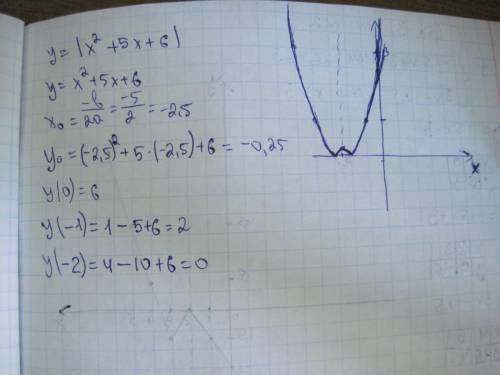 y = |x² + 5x + 6|
y = x² + 5x + 6
x₀ = -b/2a = -5/2 = -2,5
y₀ = (-2,5)² + 5·(-2,5) + 6 = -0,25
y(0) = 6
y(-1) = 1 - 5 + 6 = 2
y(-2) = 4 - 10 + 6 = 0
x